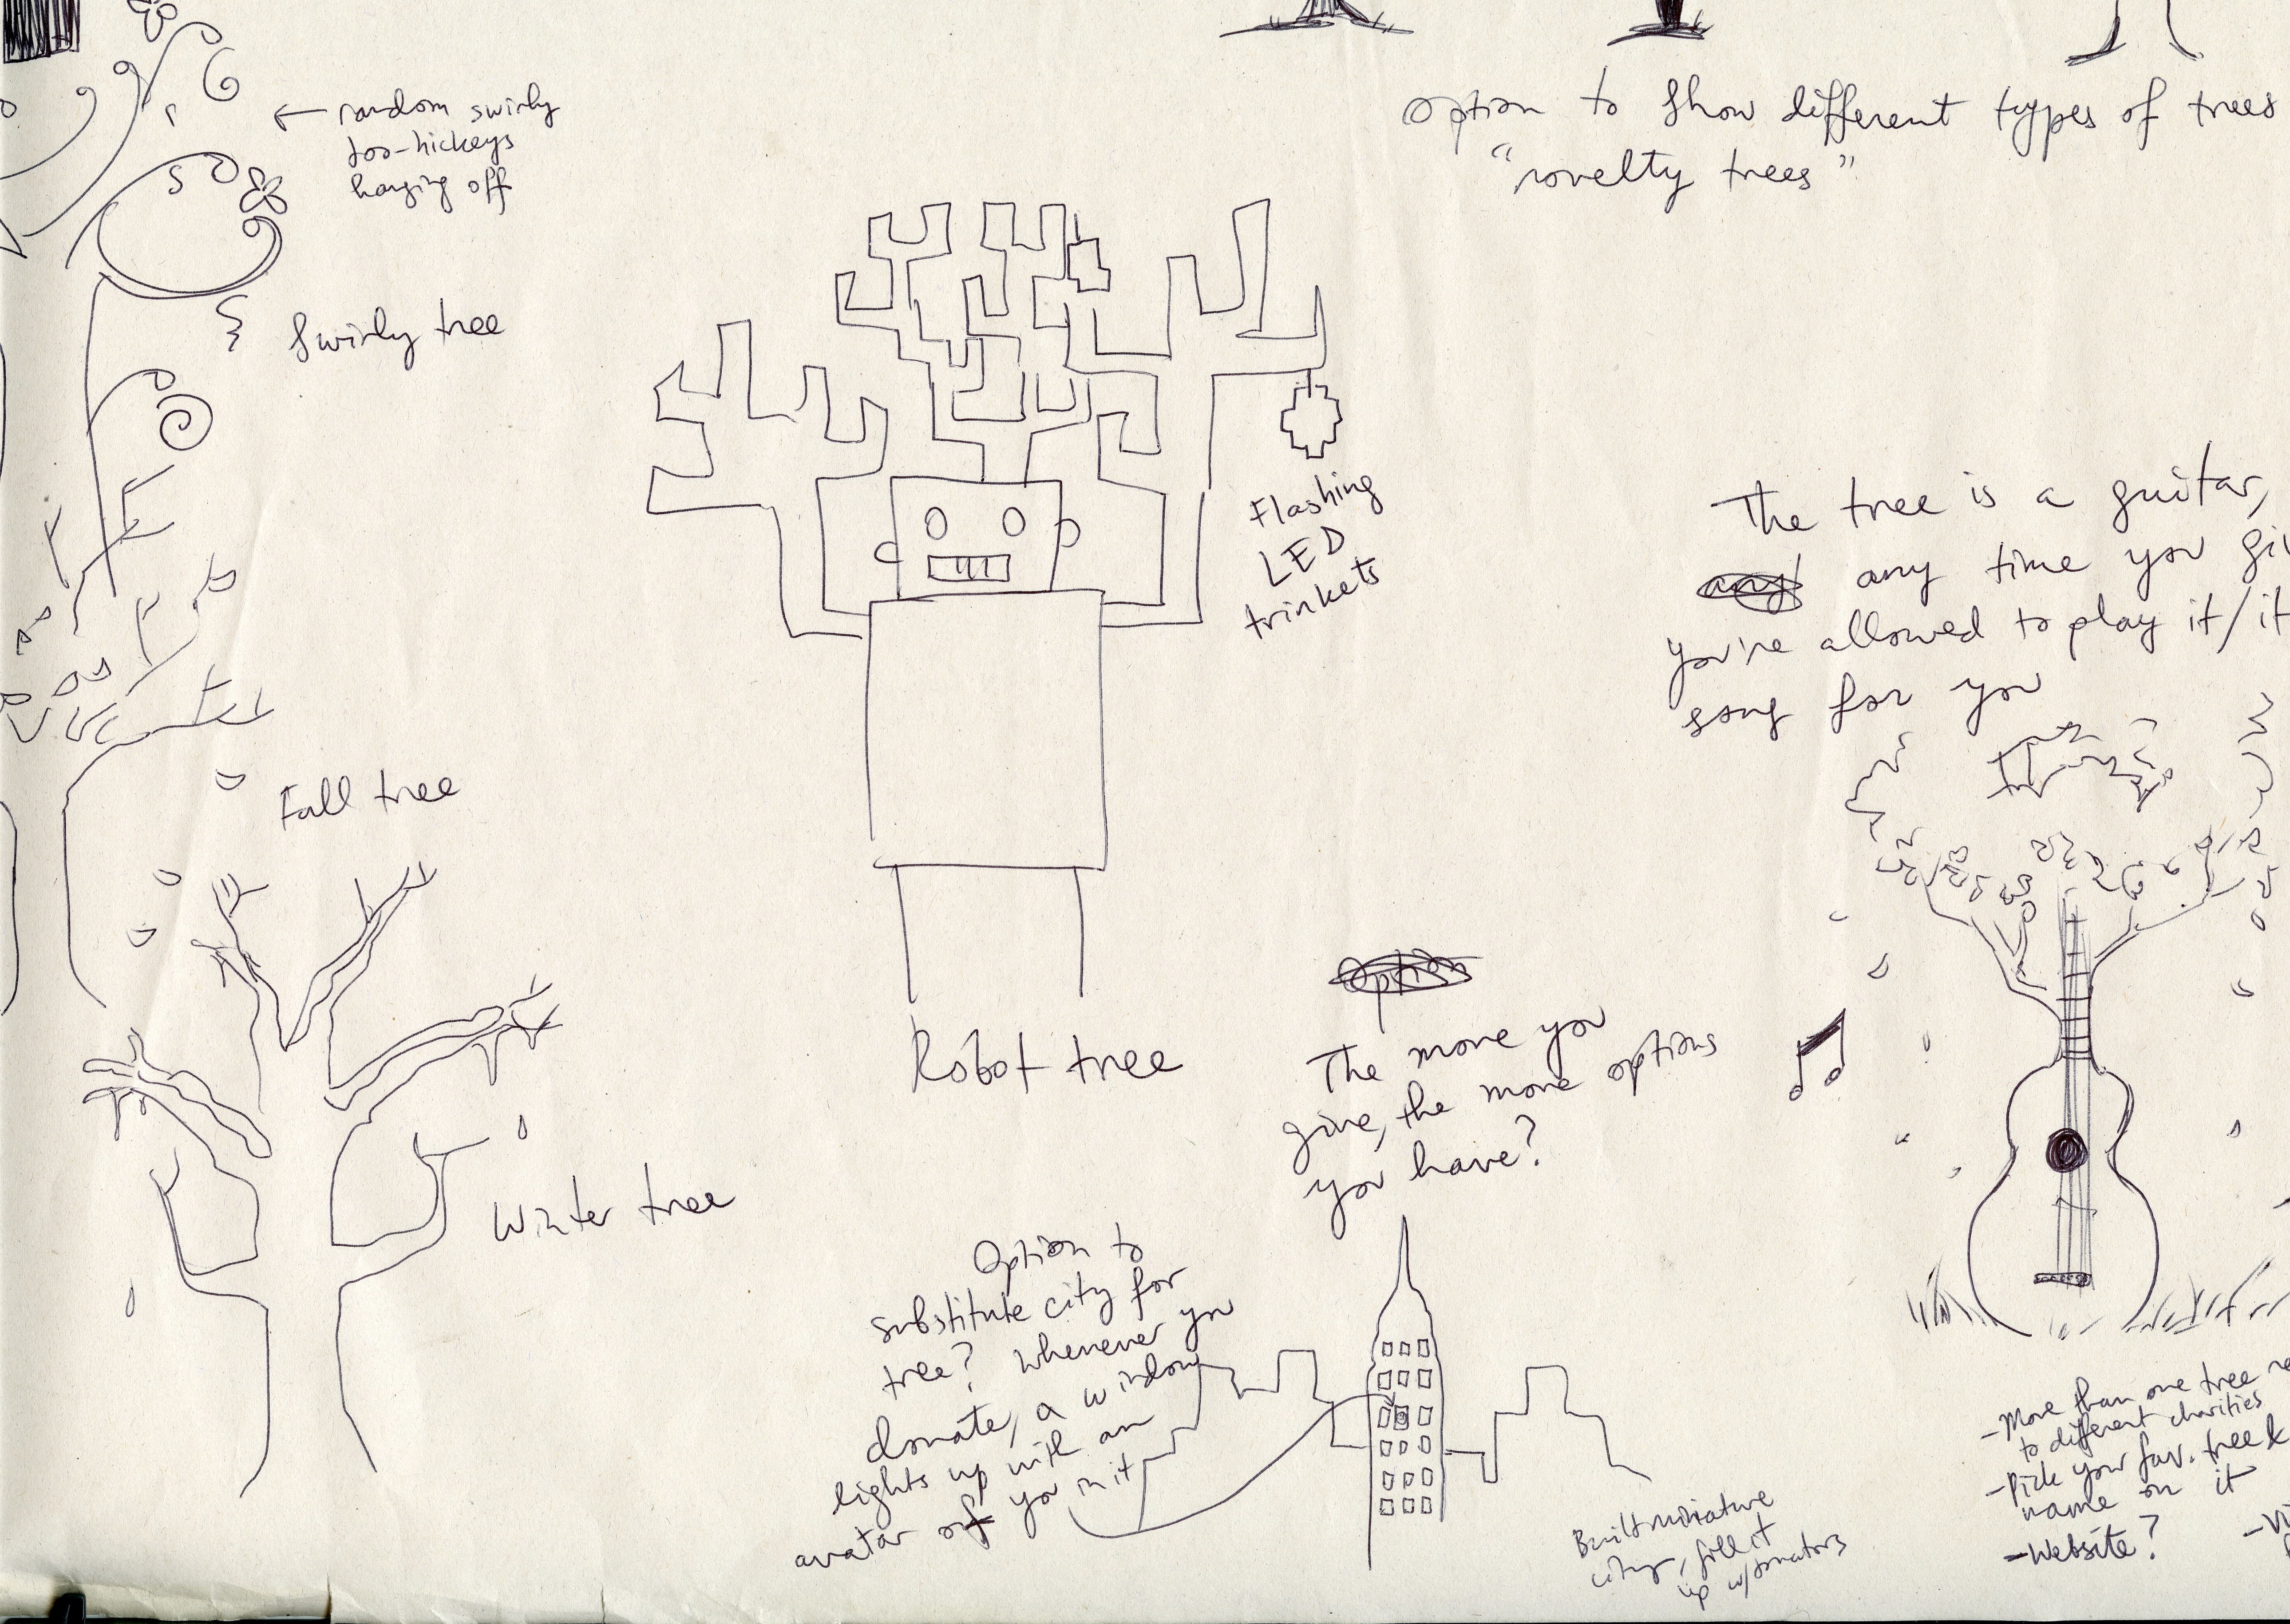 random swirly
doo-hickeys
hanging off
Swirly tree
Option to show different types of trees
"novelty trees"
Flashing
LED
trinkets
The tree is a guitar,
any any time you
you're allowed to play it/it
song for you
Fall tree
Robot tree
Option
The more you
give, the more options
you have?
Winter tree
Option to
substitute city for
tree? Whenever you
donate, a window
lights up with an
avatar of you in it
Built miniature
city, fill it
up w/donators
- More than one tree
to different charities
- Pick your fav. tree &
name on it
- Website?